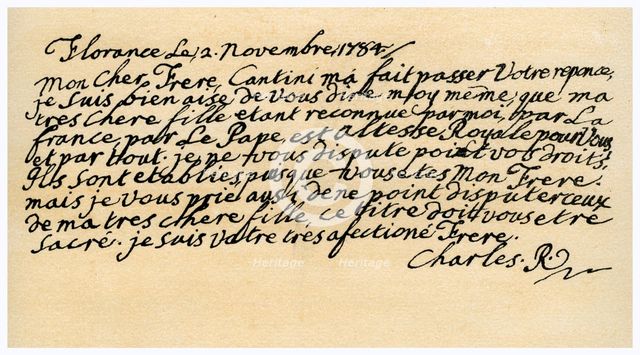 Florance Le, 2. Novembre, 1784
Mon Cher Frere, Cantini má fait passer Votre reponce,
je Suis bien aise de vous dire moy méme, que ma
tres chere fille etant reconnue par moi, par La
france, par Le Pape, est altesse Royale pour Vous
et par tout. je ne vous dispute point vos droits,
Ils sont etablies puis que vous etes Mon Frere.
mais je vous prie aussi de ne point disputer ceux
de ma tres chere fille, ce titre doit vous etre
Sacré. je suis votre tres afectioné Frere.
Charles. R.
Heritage Heritage